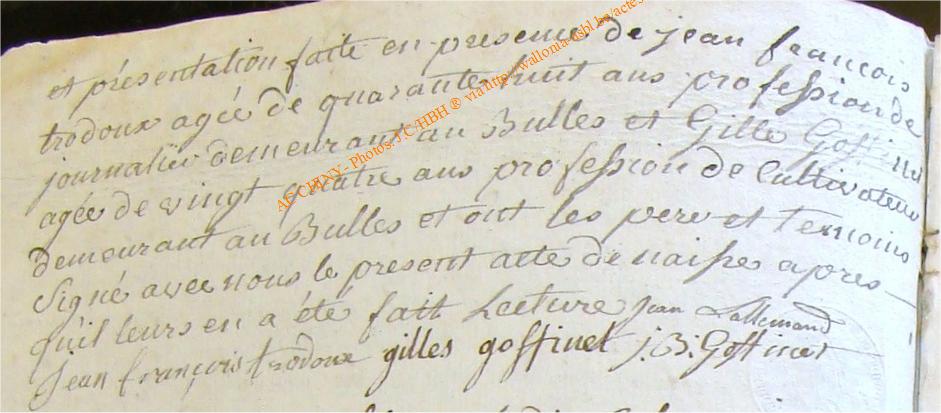 et présentation faite en presence de jean françois
trodoux agée de quarante huit ans profession de
journalier demeurant au Bulles et Gille Goffinet
agée de vingt quatre ans profession de Cultivateur
demeurant au Bulles et ont les pere et temoins
Signé avec nous le present acte de naisse apres
qu'il leurs en a été fait Lecture Jean Lallemand
Jean françois trodoux gilles goffinet j.B: Goffinet
AE CHINY - Photos: J.C/HBH ® via http://wallonia-asbl.be/actes